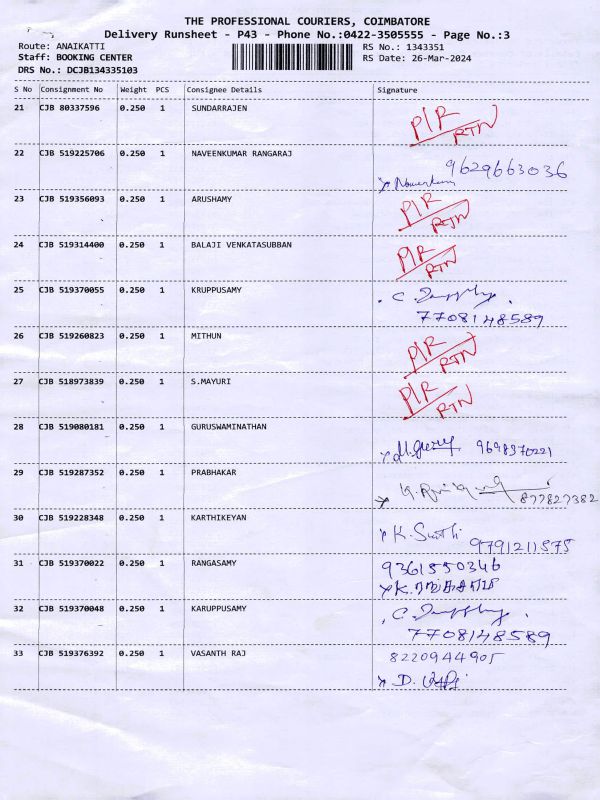 THE PROFESSIONAL COURIERS, COIMBATORE
Delivery Runsheet - P43 - Phone No.:0422-3505555 - Page No.:3
Route: ANAIKATTI RS No.: 1343351
Staff: BOOKING CENTER RS Date: 26-Mar-2024
DRS No.: DCJB134335103
S No Consignment No Weight PCS Consignee Details Signature
21 CJB 80337596 0.250 1 SUNDARRAJEN P/R RTN
22 CJB 519225706 0.250 1 NAVEENKUMAR RANGARAJ 9629663036
23 CJB 519356093 0.250 1 ARUSHAMY P/R RTN
24 CJB 519314400 0.250 1 BALAJI VENKATASUBBAN P/R RTN
25 CJB 519370055 0.250 1 KRUPPUSAMY C.
7708148589
26 CJB 519260823 0.250 1 MITHUN P/R RTN
27 CJB 518973839 0.250 1 S.MAYURI P/R RTN
28 CJB 519080181 0.250 1 GURUSWAMINATHAN
9698370221
29 CJB 519287352 0.250 1 PRABHAKAR
877827382
30 CJB 519228348 0.250 1 KARTHIKEYAN K.
9791211575
31 CJB 519370022 0.250 1 RANGASAMY 9361550346
K.
32 CJB 519370048 0.250 1 KARUPPUSAMY C.
7708148589
33 CJB 519376392 0.250 1 VASANTH RAJ 8220944905
D.